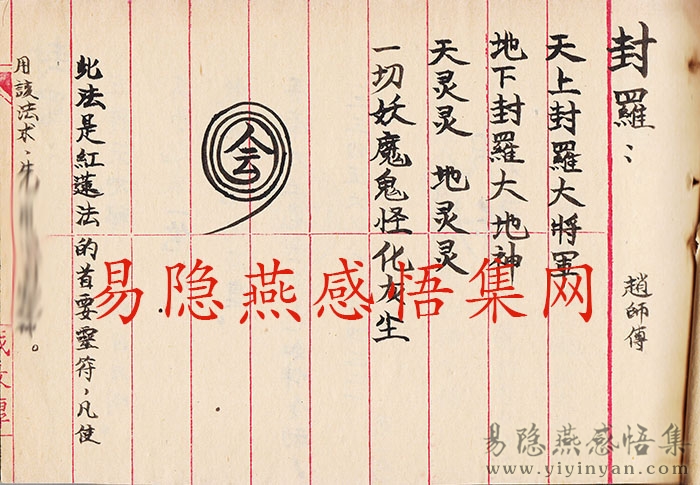 封羅：
趙師傅
天上封羅大將軍
地下封羅大地神
天灵灵 地灵灵
一切妖魔鬼怪化灰尘
会
此法是紅蓮法的首要霊符，凡使
用該法术，先
易隐燕感悟集网
易隐燕感悟集
www.yiyinyan.com